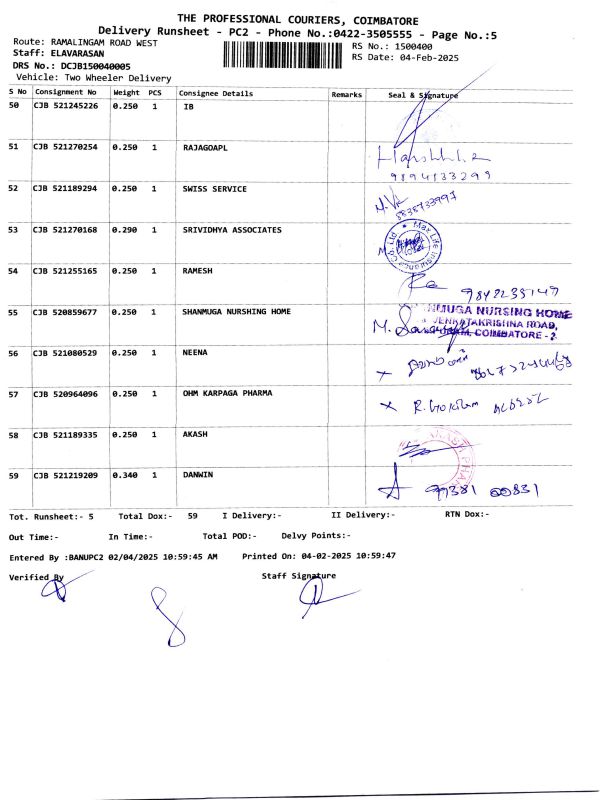 THE PROFESSIONAL COURIERS, COIMBATORE
Delivery Runsheet - PC2 - Phone No.:0422-3505555 - Page No.:5
Route: RAMALINGAM ROAD WEST RS No.: 1500400
Staff: ELAVARASAN RS Date: 04-Feb-2025
DRS No.: DCJB150040005
Vehicle: Two Wheeler Delivery
S No Consignment No Weight PCS Consignee Details Remarks Seal & Signature
50 CJB 521245226 0.250 1 IB
51 CJB 521270254 0.250 1 RAJAGOAPL
9894133299
52 CJB 521189294 0.250 1 SWISS SERVICE
53 CJB 521270168 0.290 1 SRIVIDHYA ASSOCIATES Max Life Insurance Co. Ltd
54 CJB 521255165 0.250 1 RAMESH
55 CJB 520859677 0.250 1 SHANMUGA NURSHING HOME NMUGA NURSING HOME
VENKATAKRISHNA ROAD,
COIMBATORE - 2
56 CJB 521080529 0.250 1 NEENA
57 CJB 520964096 0.250 1 OHM KARPAGA PHARMA
58 CJB 521189335 0.250 1 AKASH
59 CJB 521219209 0.340 1 DANWIN 99381 00831
Tot. Runsheet:- 5 Total Dox:- 59 I Delivery:- II Delivery:- RTN Dox:-
Out Time:- In Time:- Total POD:- Delvy Points:-
Entered By :BANUPC2 02/04/2025 10:59:45 AM Printed On: 04-02-2025 10:59:47
Verified By Staff Signature